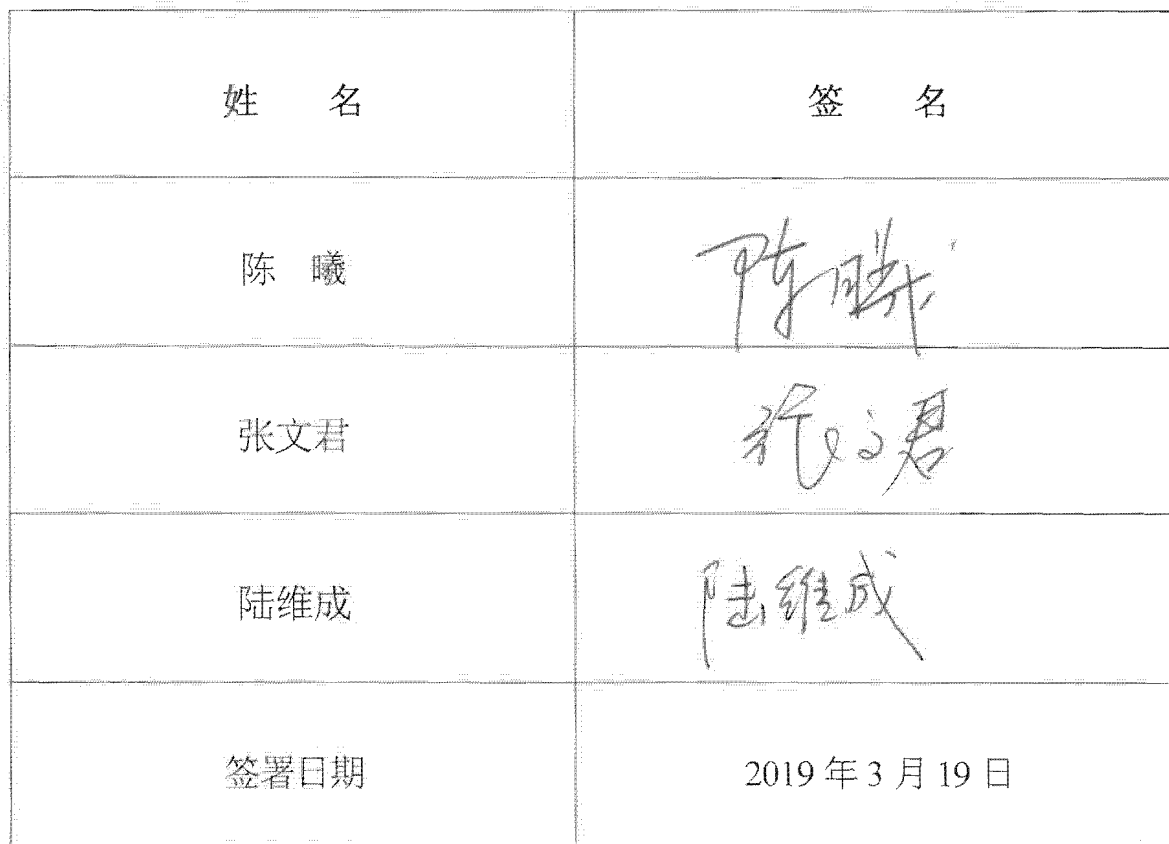 姓 名 签 名
陈 曦 陈曦
张文君 张文君
陆维成 陆维成
签署日期 2019 年 3 月 19 日